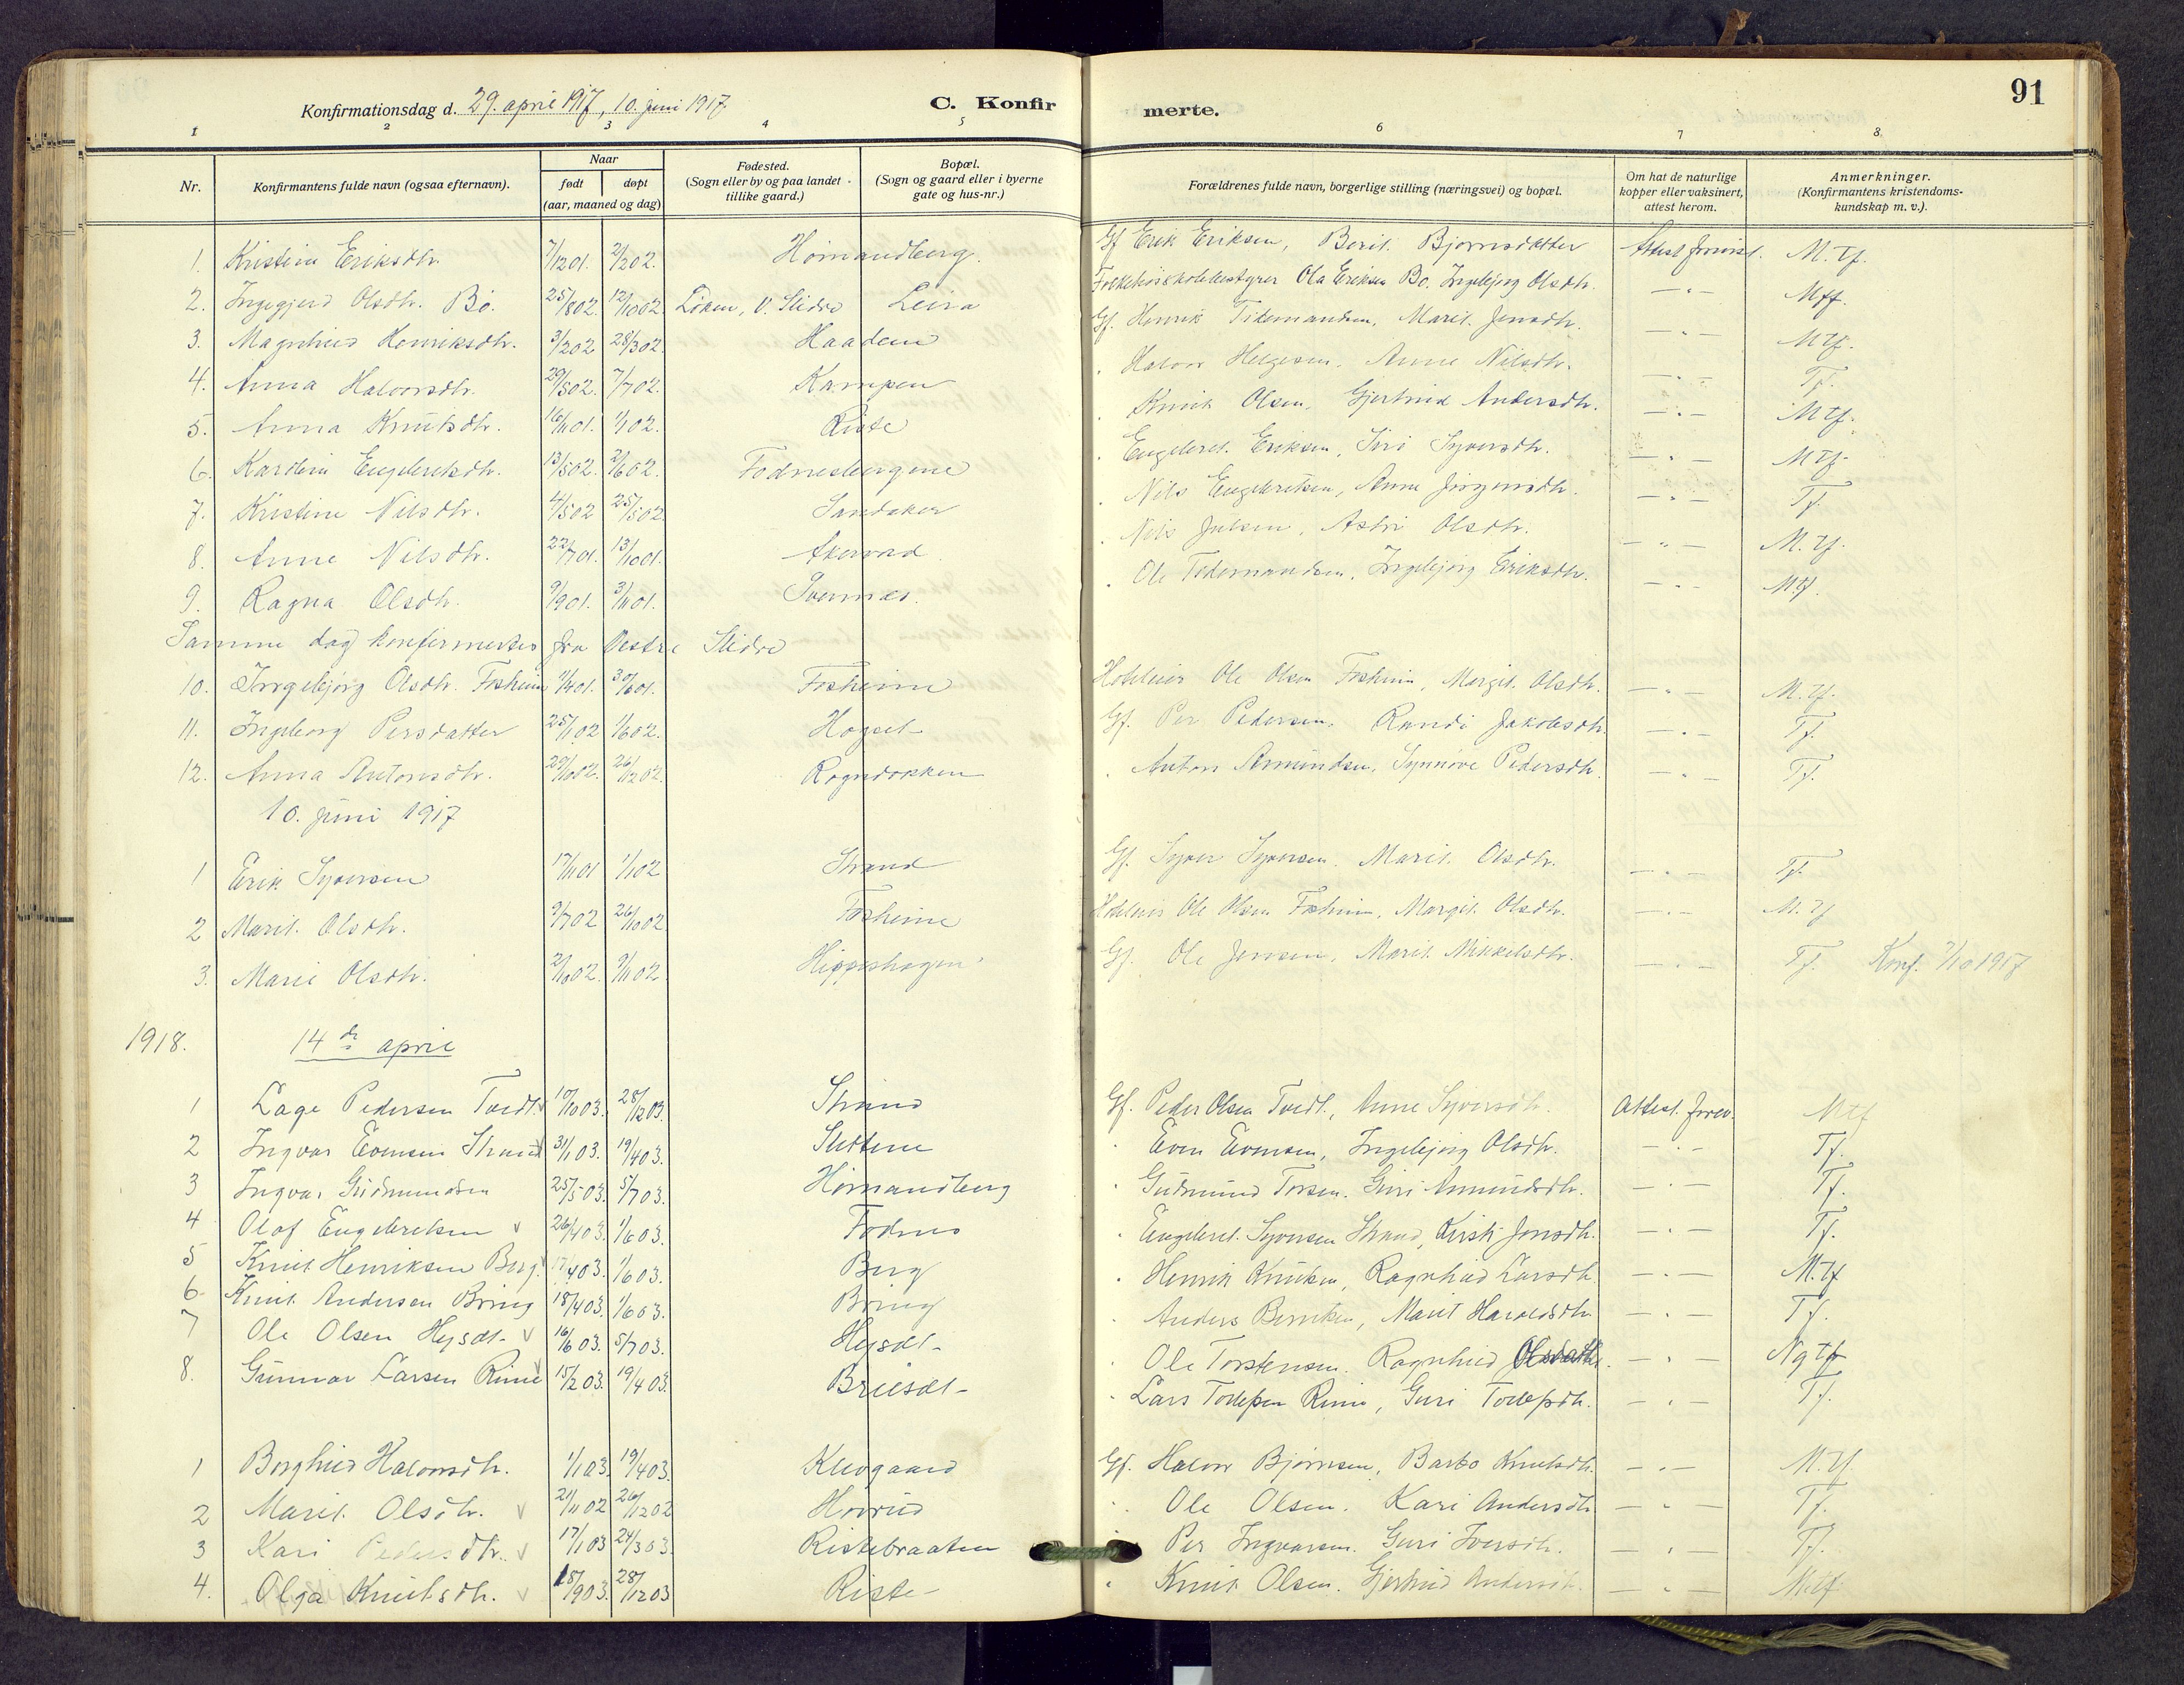 Konfirmationsdag d. 29. april 1917, 10. juni 1917
C. Konfirmerte.
91
1 2 3 4 5 6 7 8
Nr.
Konfirmantens fulde navn (ogsaa efternavn).
Naar
født døpt
(aar, maaned og dag)
Fødested.
(Sogn eller by og paa landet tillike gaard.)
Bopæl.
(Sogn og gaard eller i byerne gate og hus-nr.)
Forældrenes fulde navn, borgerlige stilling (næringsvei) og bopæl.
Om hat de naturlige kopper eller vaksinert, attest herom.
Anmerkninger.
(Konfirmantens kristendomskundskap m. v.).
1. Kristine Eriksdtr. 7/1201. 2/202. Hømandberg. Gf Erik Eriksen, Berit Bjørnsdatter Attest forevist. M.tf.
2. Ingegjerd Olsdtr. Bø. 25/802. 12/1002. Løken, V. Slidre Leira Folkehøiskolebestyrer Ola Eriksen Bø. Ingebjørg Olsdtr. — " — Mtf.
3. Magnhild Henriksdtr. 3/202 28/302. Haadem Gf. Henrik Tidemandsen, Marit Jensdtr. — " — Mtf.
4. Anna Halvorsdtr. 29/502. 7/702. Kampen " Halvor Helgesen, Anne Nilsdtr. — " — Tf.
5. Anna Knutsdtr. 16/1101. 1/102. Riste " Knut Olsen, Gjertrud Andersdtr. — " — Mtf.
6. Karoline Engebretsdtr. 13/502. 2/602. Fodnesbergene " Engebret Eriksen, Siri Syversdtr. — " — Mtf.
7. Kristine Nilsdtr. 4/502 25/502. Sandaker " Nils Engebretsen, Anne Jørgensdtr. — " — Tf.
8. Anne Nilsdtr. 22/701. 13/1001. Akervold " Nils Julsen, Astri Olsdtr. — " — M.tf.
9. Ragna Olsdtr. 9/901. 3/1101. " Ole Tidemandsen, Ingebjørg Eriksdtr. — " — Mtf.
Samme dag konfirmertes fra Vestre Slidre
10. Ingebjørg Olsdtr. Fosheim 1/401. 30/601. Fosheim Hoteleier Ole Olsen Fosheim, Margit Olsdtr. — " — M.tf.
11. Ingeborg Persdatter 25/102 1/602. Hogset Gf. Per Pedersen, Randi Jakobsdtr. — " — Tf.
12. Anna Antonsdtr. 29/1002. 26/1202. Rogndokken " Anton Amundsen, Synnøve Pedersdtr. — " — Tf.
10. juni 1917
1 Erik Syversen 17/1101 1/102 Strand Gf. Syver Syversen, Marit Olsdtr. — " — Tf.
2 Marit Olsdtr. 9/702 26/1002 Fosheim Hoteleier Ole Olsen Fosheim, Margit Olsdtr. — " — M.tf
3. Marie Olsdtr. 2/1002. 9/1102. Hippeshagen Gf. Ole Jensen, Marit Mikkelsdtr. — " — Tf. Konf. 7/10 1917
1918. 14de april
1 Lage Pedersen Tvedt. 10/1003. 28/1203. Strand Gf. Peder Olsen Tvedt., Anne Syversdtr. Attest. forev. Mtf
2 Ingvar Evensen Strand 31/103. 19/403. Slettene " Even Evensen, Ingebjørg Olsdtr. — " — Tf.
3 Ingvar Gudmundsen 25/503. 5/703. Hømandberg " Gudmund Torsen, Guri Amundsdtr. — " — Tf.
4 Olaf Engebretsen v 26/403. 1/603. Fodnes " Engebret Syversen Strand, Kirsti Jonsdtr. — " — Tf.
5 Knut Henriksen Berg. 17/403. 1/603. Berg " Henrik Knutsen, Ragnhild Larsdtr. — " — M.tf
6 Knut Andersen Bring 18/403. 1/603. Bring " Anders Berntsen, Marit Haraldsdtr. — " — Tf.
7 Ole Olsen v 16/603. 5/703. " Ole Torstensen, Ragnhild Olsdatter. — " — Ngtf
8. Gunnar Larsen Rime v 15/203. 19/403. " Lars Tollefsen Rime, Guri Tollefsdtr. — " — Tf.
1 Borghild Halvorsdtr. 1/103. 19/403. Klevgaard Gf. Halvor Bjørnsen, Barbo Knutsdtr. — " — M.tf.
2 Marit Olsdtr. v 21/1102 26/1202 Hovrud " Ole Olsen, Kari Andersdtr. — " — Tf.
3 Kari Pedersdtr. v 17/103 24/303. Ristebraaten " Per Ingvarsen, Guri Iversdtr. — " — Tf.
4. Olga Knutsdtr. v 18/903. 28/1203 Riste " Knut Olsen, Gjertrud Andersdtr. — " — Mtf.